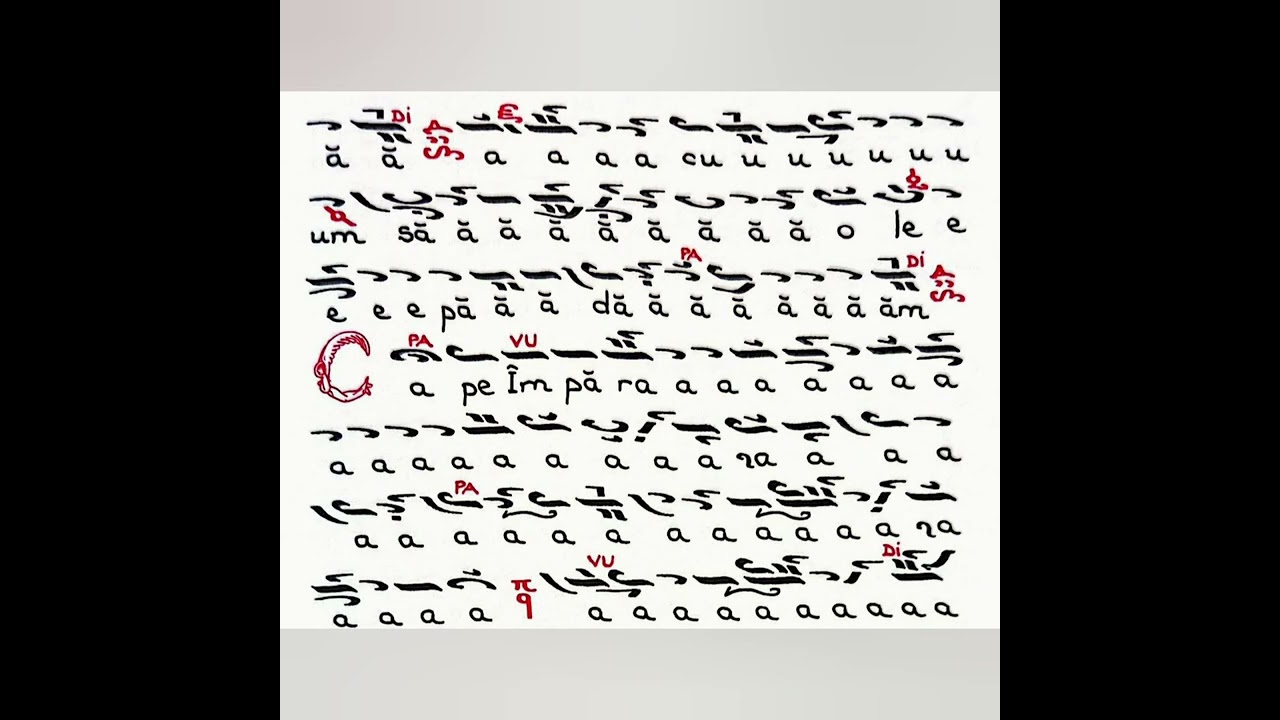 DI
ă ă a a a a cu u u u u u u
um să ă ă ă ă ă ă ă ă o le e
PA DI
e e e pă ă ă dă ă ă ă ă ă ă ăm
PA VU
C a pe Îm pă ra a a a a a a a
a a a a a a a a a ra a a a
PA
a a a a a a a a a a a a ra
VU DI
a a a a π q a a a a a a a a a